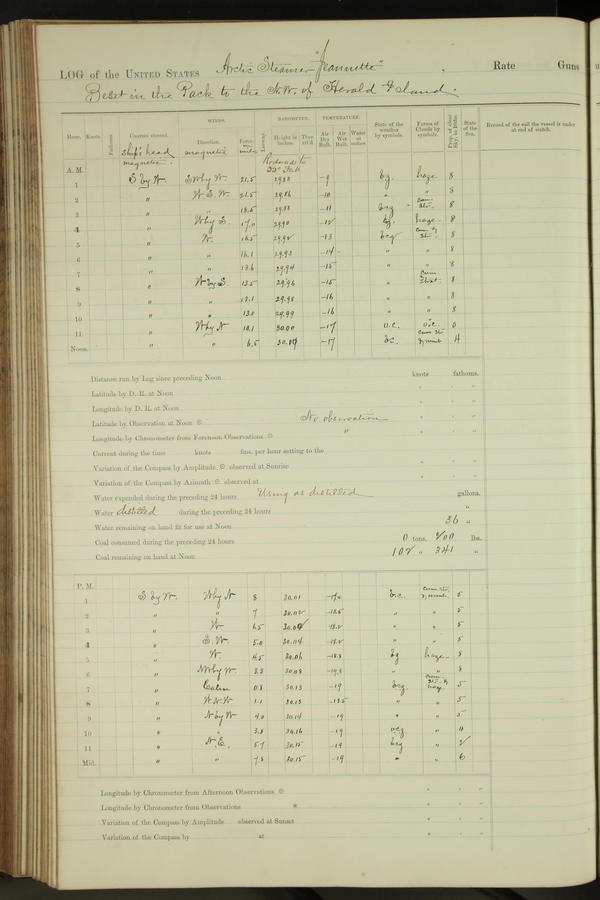 LOG of the UNITED STATES Arctic Steamer "Jeannette" Rate Guns
Beset in the Pack to the N.W. of Herald Island.
WINDS. BAROMETER. TEMPERATURE.
Hour. Knots. Fathoms. Courses steered. Direction. Force. Leeway. Height in inches. Ther. att'd. Air Dry Bulb. Air Wet Bulb. Water at surface. State of the weather by symbols. Forms of Clouds by symbols. Prop. of clear Sky, in 10ths. State of the Sea. Record of the sail the vessel is under at end of watch.
ship's head magnetic. magnetic miles Reduced to 32° Fah
A. M.
1 S by W. SW by W. 21.5 29.88 -9 haze 8
2 " W.S.W. 21.5 29.86 -10 " " 8
3 " " 18.5 29.88 -11 8
4 " W by S. 17.0 29.90 -12 haze 8
5 " W. 16.5 29.92 -13 8
6 " " 16.1 29.93 -14 " " 8
7 " " 13.6 29.94 -15 " " 8
8 " W by S. 13.5 29.96 -15 8
9 " " 29.98 -16 " " 8
10 " " 13.0 29.99 -16 " " 8
11 " W by N 10.1 30.00 -17 o.c. 0
Noon. " " 6.5 -17 4
Distance run by Log since preceding Noon knots fathoms.
Latitude by D. R. at Noon
Longitude by D. R. at Noon
Latitude by Observation at Noon No observation
Longitude by Chronometer from Forenoon Observations "
Current during the time knots fms. per hour setting to the
Variation of the Compass by Amplitude observed at Sunrise
Variation of the Compass by Azimuth observed at
Water expended during the preceding 24 hours Using as distilled gallons.
Water distilled during the preceding 24 hours "
Water remaining on hand fit for use at Noon 36 "
Coal consumed during the preceding 24 hours 0 tons. 400 lbs.
Coal remaining on hand at Noon 102 " 341 "
P. M.
1 S by W. W by N 8 30.01 b.c. 5
2 " " 7 30.02 -18.5 " " 5
3 " W 6.5 -18.2 " " 5
4 " S.W. 5.0 30.04 -18.2 " " 5
5 " W. 4.5 30.06 -18.8 haze 8
6 " NW by W. 3.3 30.08 " " 8
7 " Calm 0.8 30.13 -19 haze 5
8 " W.N.W 1.1 30.13 -18.5 " " 5
9 " N by W 4.0 30.14 -19 " " 5
10 " " 3.8 30.16 -19 " 0
11 " N.E. 5.7 30.15 -19 " 2
Mid. " " 7.8 30.15 -19 " " 6
Longitude by Chronometer from Afternoon Observations
Longitude by Chronometer from Observations
Variation of the Compass by Amplitude observed at Sunset
Variation of the Compass by at